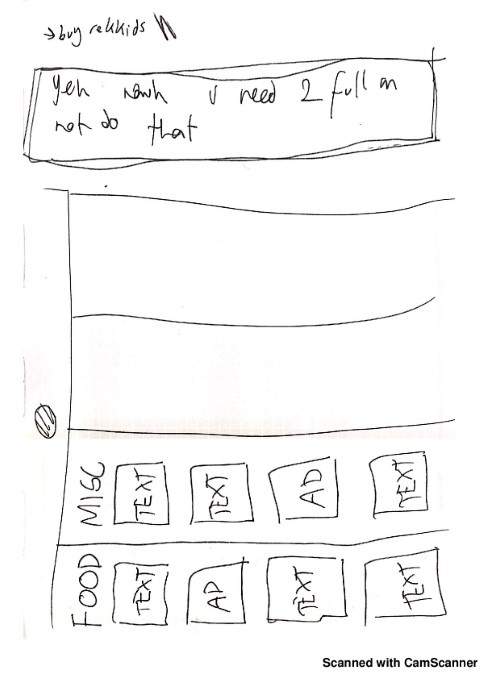 →buy rekkids \\
yeh nawh u need 2 full on
not do that
MISC
TEXT
TEXT
AD
TEXT
FOOD
TEXT
AD
TEXT
TEXT
Scanned with CamScanner